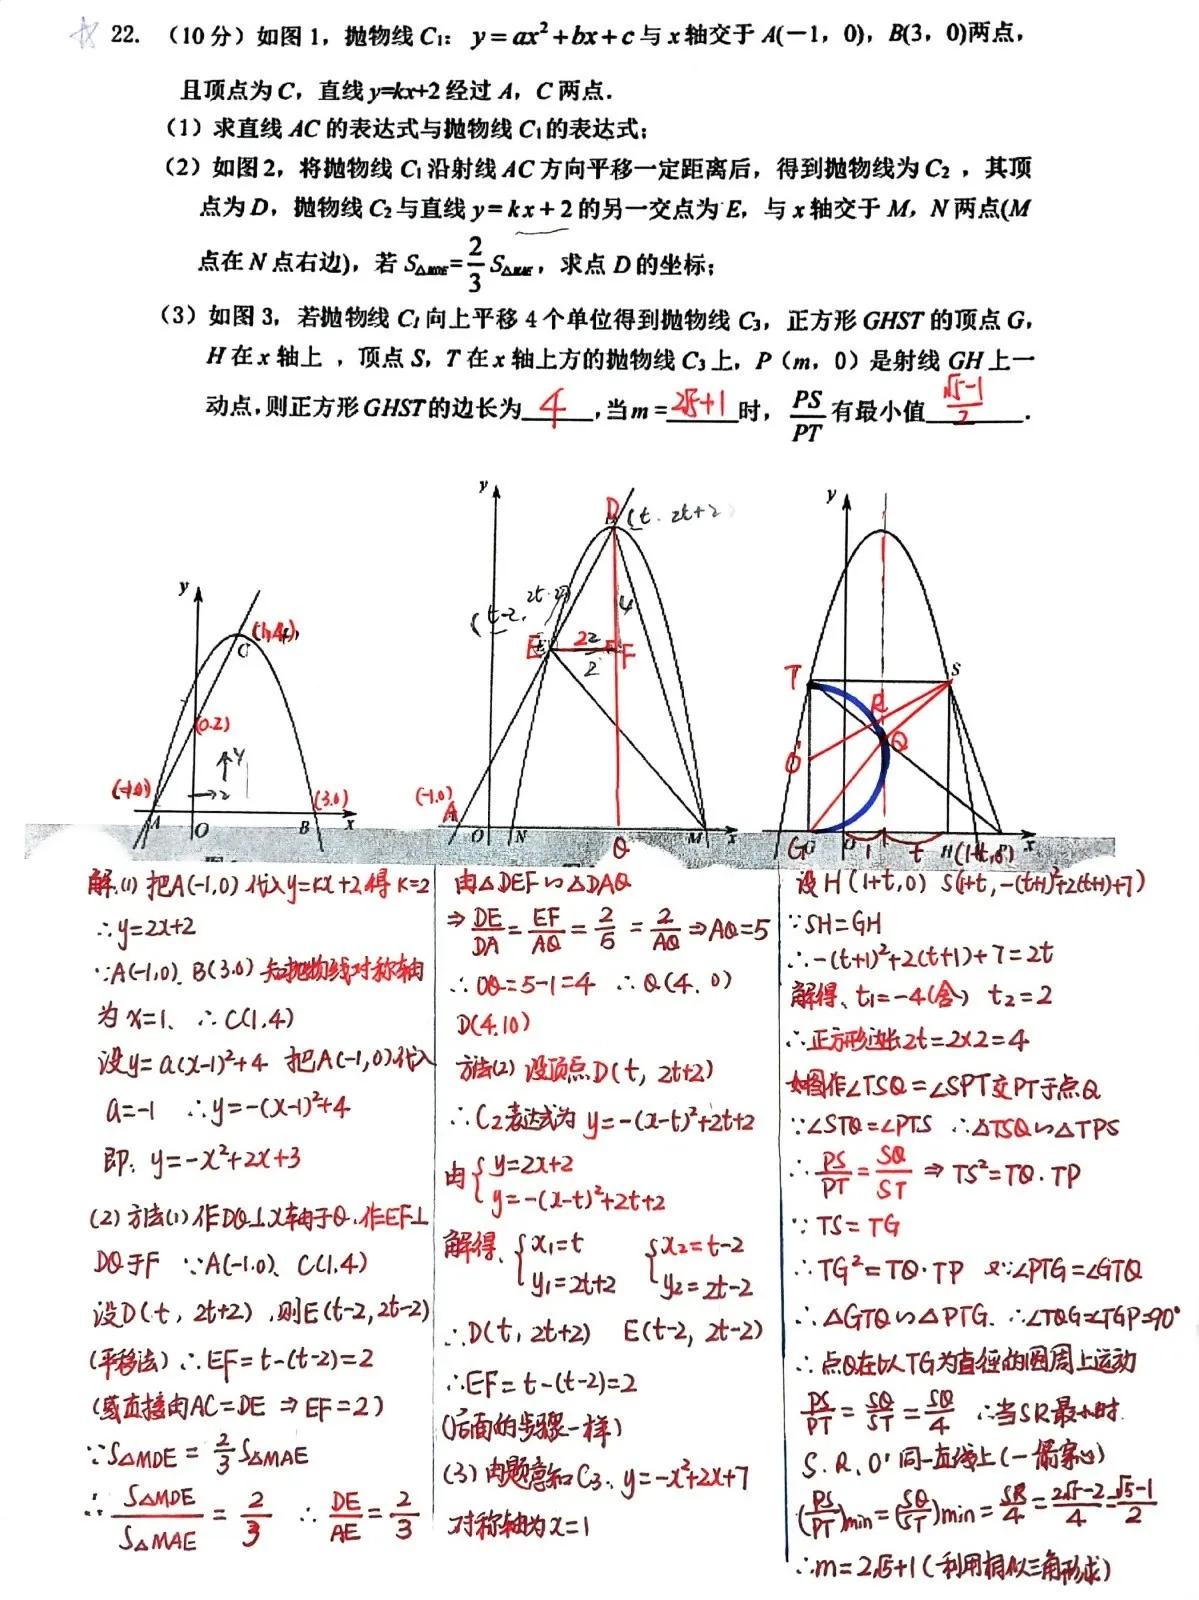 22. (10分)如图1，抛物线C₁：y=ax²+bx+c与x轴交于A(－1，0)，B(3，0)两点，
且顶点为C，直线y=kx+2经过A，C两点.
(1)求直线AC的表达式与抛物线C₁的表达式；
(2)如图2，将抛物线C₁沿射线AC方向平移一定距离后，得到抛物线为C₂，其顶
点为D，抛物线C₂与直线y=kx+2的另一交点为E，与x轴交于M，N两点(M
点在N点右边)，若S△MDE=2/3 S△MAE，求点D的坐标；
(3)如图3，若抛物线C₁向上平移4个单位得到抛物线C₃，正方形GHST的顶点G，
H在x轴上，顶点S，T在x轴上方的抛物线C₃上，P(m，0)是射线GH上一
动点，则正方形GHST的边长为 4 ，当m= 2√5+1 时，PS/PT有最小值 (√5-1)/2 .
y
(1,4)
C
(0.2)
4
2
(-1,0)
(3.0)
A
O
B
x
y
D
(t. 2t+2)
(t-2, 2t-2)
4
E
2
2
F
2
(-1.0)
A
O
N
Q
M
x
y
T
S
R
O'
Q
G
G
1
t
H
(1+t,0)
P
x
解.(1) 把A(-1,0)代入y=kx+2,得k=2
∴y=2x+2
∵A(-1,0). B(3.0)知抛物线对称轴
为x=1、∴C(1.4)
设y=a(x-1)²+4 把A(-1,0)代入
a=-1 ∴y=-(x-1)²+4
即: y=-x²+2x+3
(2)方法(1)作DQ⊥x轴于Q.作EF⊥
DQ于F ∵A(-1.0)、C(1.4)
设D(t, 2t+2),则E(t-2,2t-2)
(平移法)∴EF=t-(t-2)=2
(或直接由AC=DE⇒EF=2)
∵S△MDE=2/3 S△MAE
∴S△MDE/S△MAE=2/3 ∴DE/AE=2/3
由△DEF∽△DAQ
⇒DE/DA=EF/AQ=2/5=2/AQ⇒AQ=5
∴OQ=5-1=4 ∴Q(4,0)
D(4.10)
方法(2)设顶点D(t, 2t+2)
∴C₂表达式为y=-(x-t)²+2t+2
由{y=2x+2
y=-(x-t)²+2t+2
解得、{x₁=t {x₂=t-2
y₁=2t+2 y₂=2t-2
∴D(t, 2t+2) E(t-2, 2t-2)
∴EF=t-(t-2)=2
(后面的步骤一样)
(3)由题意知C₃: y=-x²+2x+7
对称轴为x=1
设H(1+t,0) S(1+t, -(t+1)²+2(t+1)+7)
∵SH=GH
∴-(t+1)²+2(t+1)+7=2t
解得、t₁=-4(舍) t₂=2
∴正方形边长2t=2×2=4
如图作∠TSQ=∠SPT交PT于点Q
∵∠STQ=∠PTS ∴△TSQ∽△TPS
∴PS/PT=SQ/ST⇒TS²=TQ·TP
∵TS=TG
∴TG²=TQ·TP 又∵∠PTG=∠GTQ
∴△GTQ∽△PTG. ∴∠TQG=∠TGP=90°
∴点Q在以TG为直径的圆周上运动
PS/PT=SQ/ST=SQ/4 ∴当SR最小时.
S.R.O'同一直线上(一箭穿心)
(PS/PT)min=(SQ/ST)min=SR/4=(2√5-2)/4=(√5-1)/2
∴m=2√5+1(利用相似三角形求)